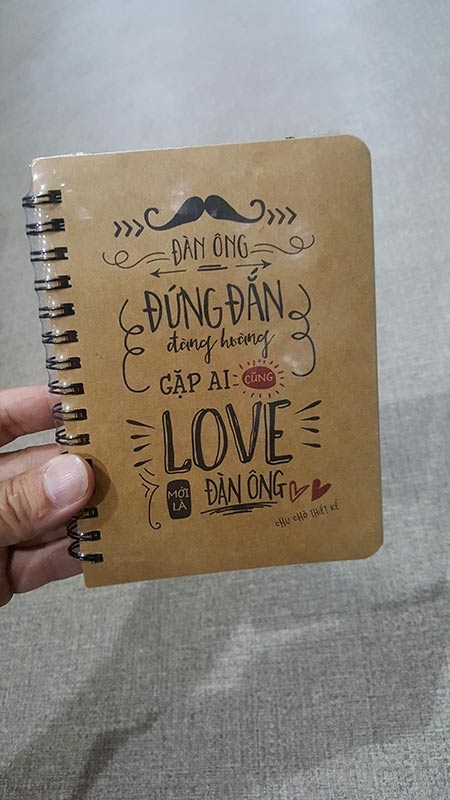 ĐÀN ÔNG
ĐỨNG ĐẮN
đàng hoàng
GẶP AI CŨNG
LOVE
MỚI LÀ ĐÀN ÔNG
CHÚ CHÓ THIẾT KẾ